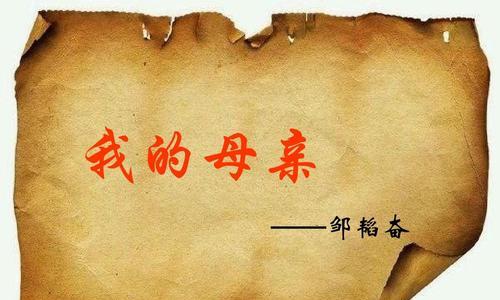 我的母亲
——邹韬奋